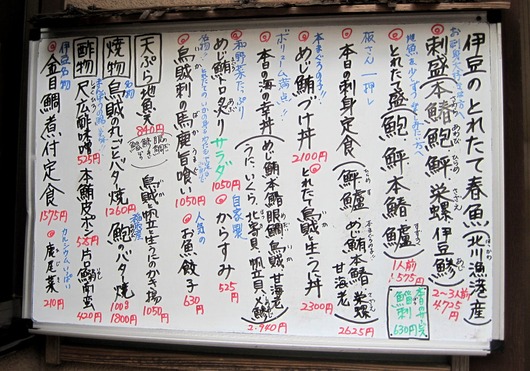 伊豆のとれたて春魚(北川漁港産)
お刺身大好きな方へ
刺盛(本鰆 鮑 鮃 栄螺 伊豆鯵)
2~3人前 4.725円
地魚を少しずつ
とれたて盛(鮑、鮃、本鰆、鱸)
1人前 1.575円
鯔刺 630円
板さん一押し
本日の刺身定食(鮃、鱸、めじ鮪、本鰆、栄螺、甘海老)
2625円
本まぐろの子
めじ鮪づけ丼 2100円
とれたて烏賊生うに丼 2300円
ボリューム満点!!
本日の海の幸丼(めじ鮪、本鰆、眼鯛、烏賊、甘海老、うに、いくら、北寄貝、帆立貝、〆鯵)
2.940円
和野菜たっぷり
めじ鮪トロ炙りサラダ 1050円
自家製
からすみ 525円
名物
烏賊刺の馬鹿旨喰い 1050円
人気の
お魚餃子 630円
天ぷら 地魚天 840円
烏賊と帆立と生うにのかき揚 1050円
焼物 烏賊丸ごとピリ焼 1260円
鮑のバター焼 100g 1800円
酢物 尺八広酢味噌 525円
本鮪皮ポン 525円
片口鰯南蛮 420円
伊豆名物
金目鯛煮付定食 1575円
カルシウムいっぱい
鹿尾菜 210円